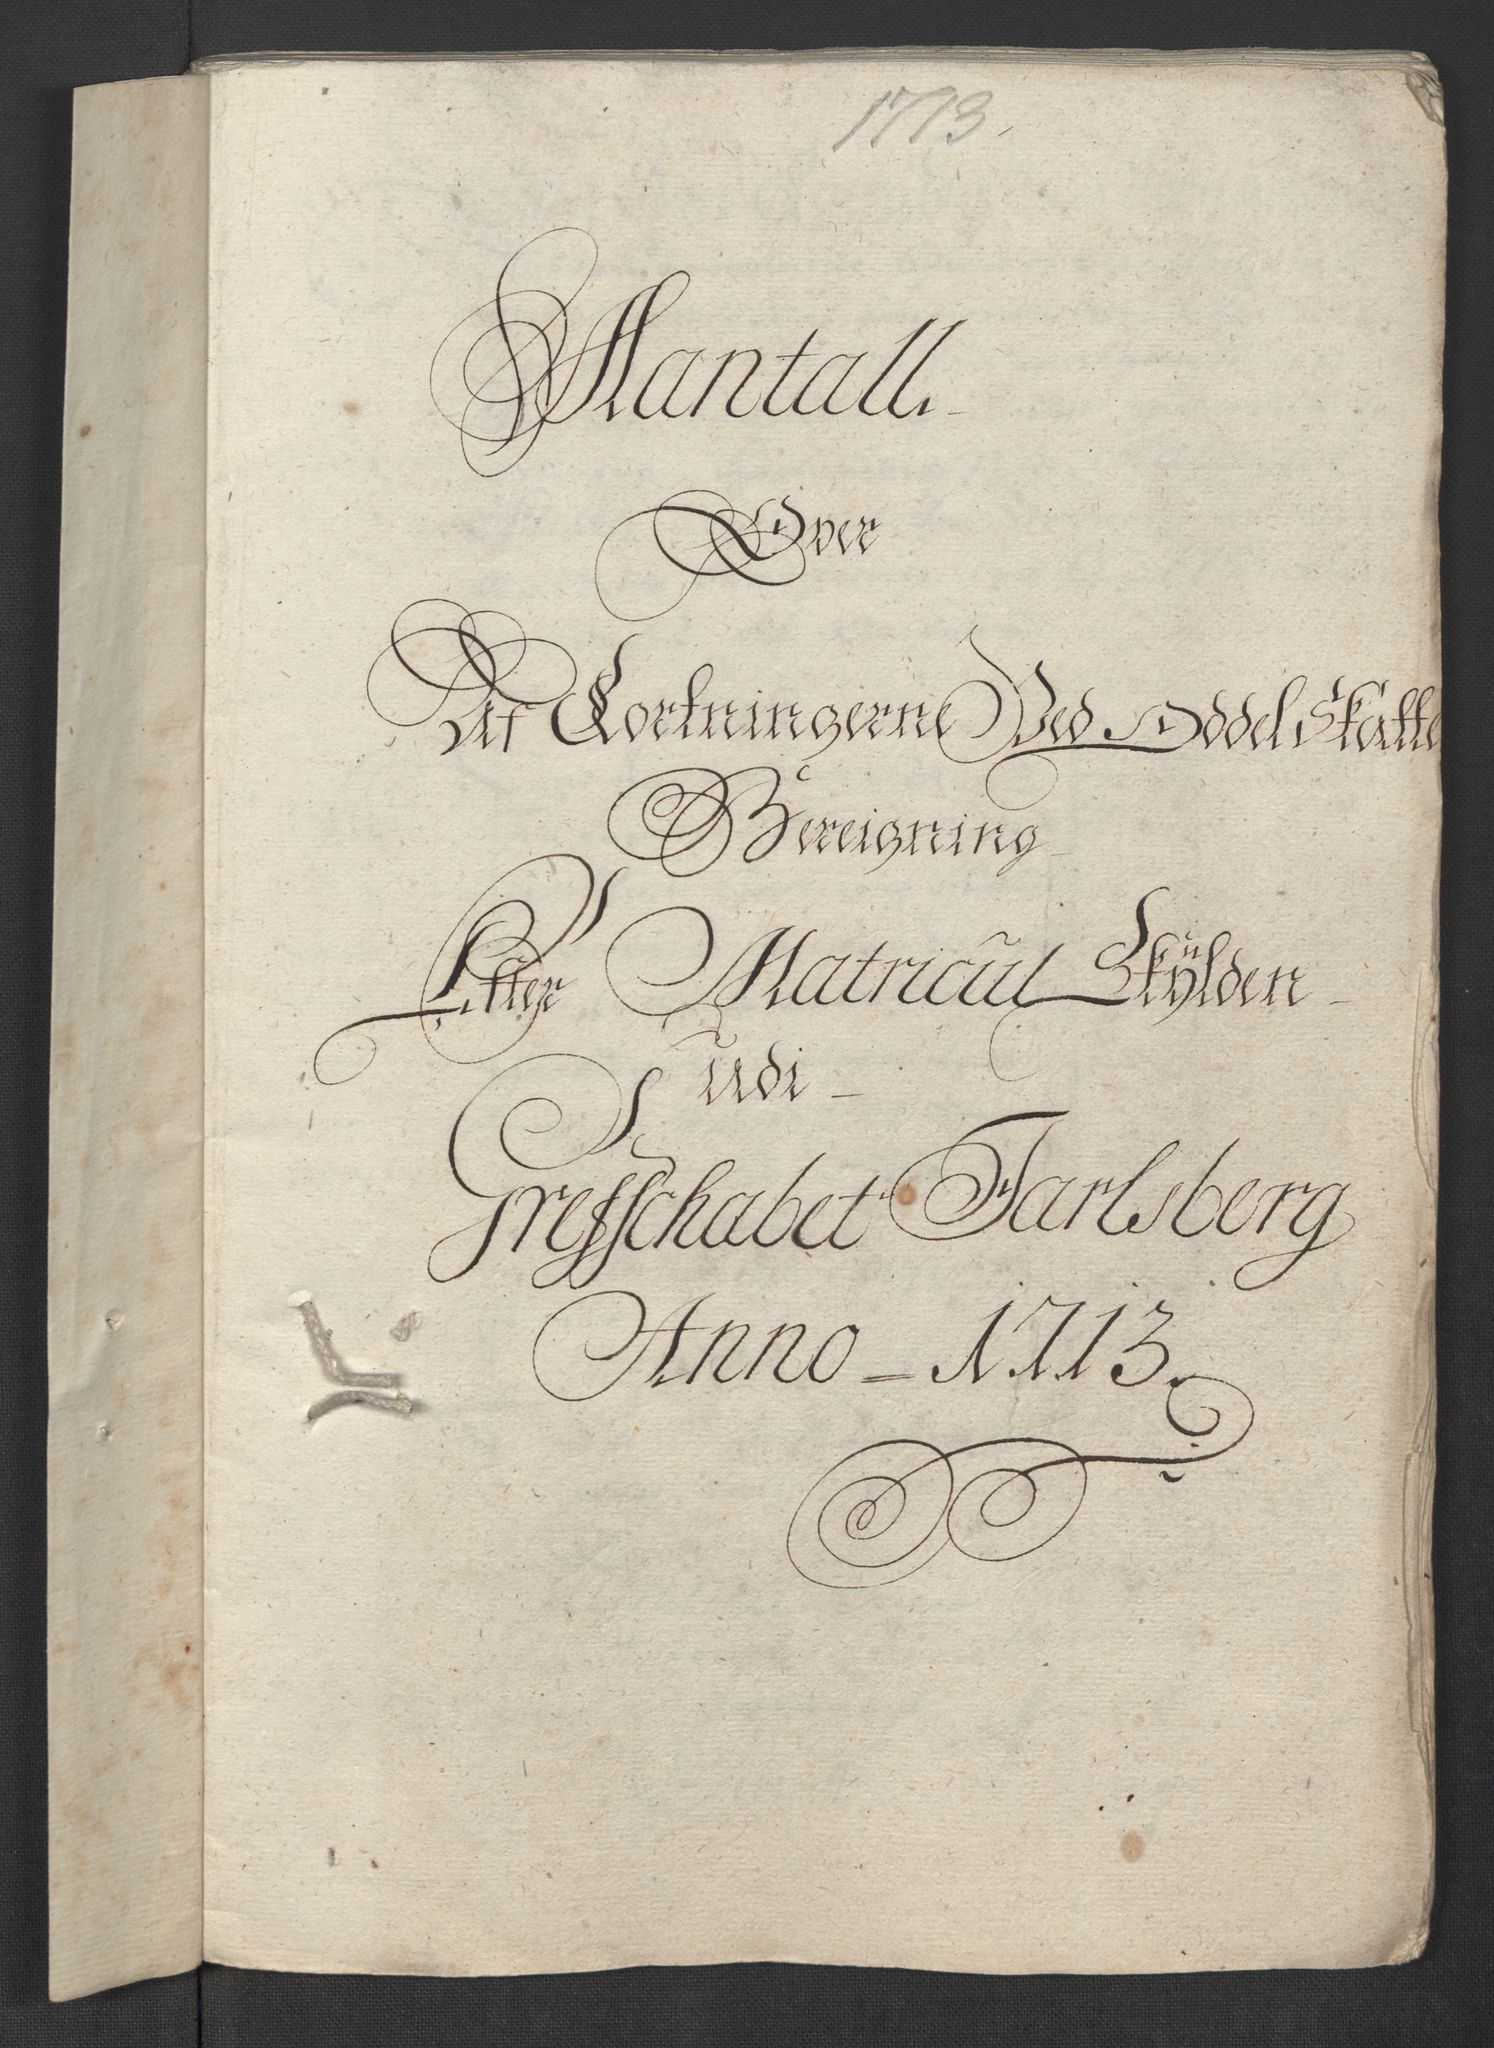 1713.
Mantall.
Over
Af Kortningerne Ved Oddel Skatte
Bereigning
Efter Matricul Skÿlden
udi
Grefschabet Jarlsberg
Anno 1713.